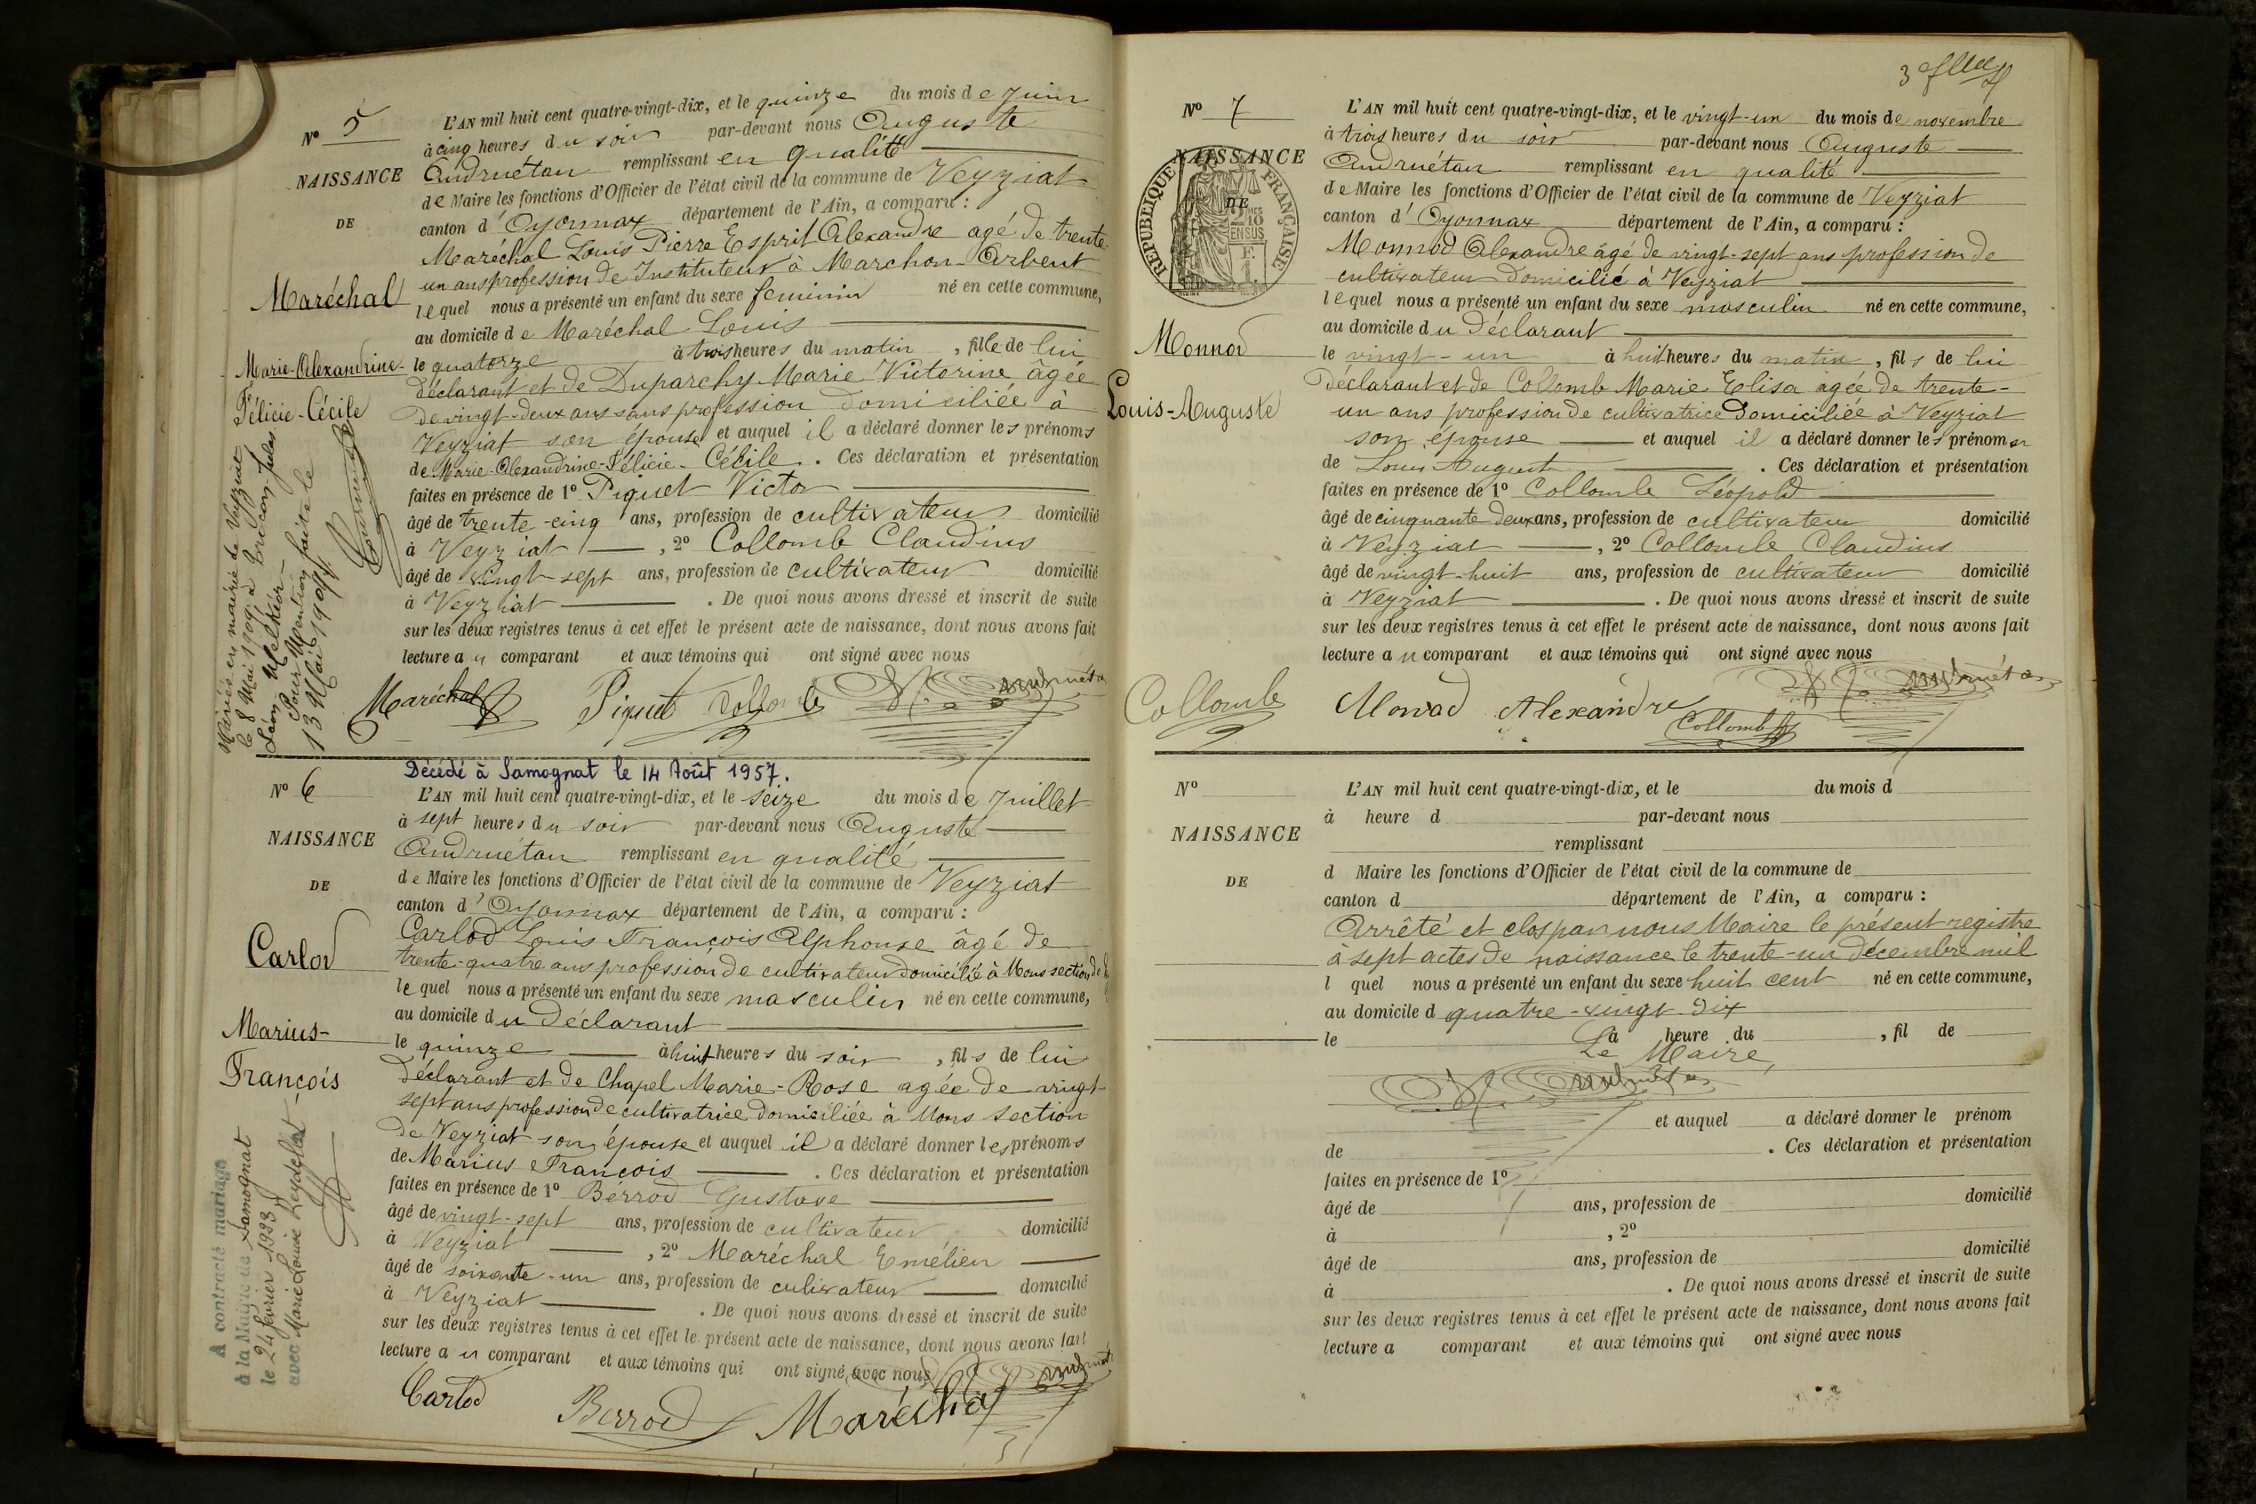 N° 5
NAISSANCE
DE
Maréchal
Marie-Alexandrine-
Félicie-Cécile
Mariés en mairie de Veyziat
le 8 Mai 1909 à
Léon Melkior -
Pour Mention faite le
13 Mai 1909
L'AN mil huit cent quatre-vingt-dix, et le quinze du mois de Juin
à cinq heures du soir par-devant nous Auguste
Andruétan remplissant en qualité
de Maire les fonctions d'Officier de l'état civil de la commune de Veyziat
canton d'Oyonnax département de l'Ain, a comparu :
Maréchal Louis Pierre Esprit Alexandre agé de trente-
un ans profession de Instituteur à Marchon-Arbent
lequel nous a présenté un enfant du sexe feminin né en cette commune,
au domicile de Maréchal Louis
le quatorze à trois heures du matin, fille de lui
déclarant et de Duparchy Marie Victorine âgée
de vingt-deux ans sans profession domiciliée à
Veyziat son épouse et auquel il a déclaré donner les prénoms
de Marie-Alexandrine-Félicie-Cécile. Ces déclaration et présentation
faites en présence de 1° Piquet Victor
âgé de trente-cinq ans, profession de cultivateur domicilié
à Veyziat, 2° Collomb Claudius
âgé de vingt sept ans, profession de cultivateur domicilié
à Veyziat. De quoi nous avons dressé et inscrit de suite
sur les deux registres tenus à cet effet le présent acte de naissance, dont nous avons fait
lecture au comparant et aux témoins qui ont signé avec nous
Maréchal Piquet Collomb Andruétan
Décédé à Samognat le 14 Août 1957.
N° 6
NAISSANCE
DE
Carlod
Marius-
François
A contracté mariage
à la Mairie de Samognat
le 24 février 1923
avec Marie Louise Reydellet
L'AN mil huit cent quatre-vingt-dix, et le seize du mois de Juillet
à sept heures du soir par-devant nous Auguste
Andruétan remplissant en qualité
de Maire les fonctions d'Officier de l'état civil de la commune de Veyziat
canton d'Oyonnax département de l'Ain, a comparu :
Carlod Louis François Alphonse âgé de
trente-quatre ans profession de cultivateur domicilié à Mons section de
lequel nous a présenté un enfant du sexe masculin né en cette commune,
au domicile du déclarant
le quinze à huit heures du soir, fils de lui
déclarant et de Chapel Marie-Rose agée de vingt-
sept ans profession de cultivatrice domiciliée à Mons section
de Veyziat son épouse et auquel il a déclaré donner les prénoms
de Marius François. Ces déclaration et présentation
faites en présence de 1° Bérrod Gustave
âgé de vingt-sept ans, profession de cultivateur domicilié
à Veyziat, 2° Maréchal Emélien
âgé de soixante-un ans, profession de cultivateur domicilié
à Veyziat. De quoi nous avons dressé et inscrit de suite
sur les deux registres tenus à cet effet le présent acte de naissance, dont nous avons fait
lecture au comparant et aux témoins qui ont signé avec nous
Carlod Berrod Maréchal
3e
N° 7
NAISSANCE
DE
RÉPUBLIQUE FRANÇAISE
Monnod
Louis-Auguste
L'AN mil huit cent quatre-vingt-dix, et le vingt-un du mois de novembre
à trois heures du soir par-devant nous Auguste
Andruétan remplissant en qualité
de Maire les fonctions d'Officier de l'état civil de la commune de Veyziat
canton d'Oyonnax département de l'Ain, a comparu :
Monnod Alexandre âgé de vingt-sept ans profession de
cultivateur domicilié à Veyziat
lequel nous a présenté un enfant du sexe masculin né en cette commune,
au domicile du déclarant
le vingt-un à huit heures du matin, fils de lui
déclarant et de Collomb Marie Elisa agée de trente-
un ans profession de cultivatrice domiciliée à Veyziat
son épouse et auquel il a déclaré donner les prénoms
de Louis August. Ces déclaration et présentation
faites en présence de 1° Collombe Léopold
âgé de cinquante deux ans, profession de cultivateur domicilié
à Veyziat, 2° Collombe Claudius
âgé de vingt-huit ans, profession de cultivateur domicilié
à Veyziat. De quoi nous avons dressé et inscrit de suite
sur les deux registres tenus à cet effet le présent acte de naissance, dont nous avons fait
lecture au comparant et aux témoins qui ont signé avec nous
Collombe Monnod Alexandre Collomb Andruétan
N°
NAISSANCE
DE
L'AN mil huit cent quatre-vingt-dix, et le du mois d
à heure d par-devant nous
remplissant
d Maire les fonctions d'Officier de l'état civil de la commune de
canton d département de l'Ain, a comparu :
Arrêté et clos par nous Maire le présent registre
à sept actes de naissance le trente-un décembre mil
l quel nous a présenté un enfant du sexe huit cent né en cette commune,
au domicile d quatre-vingt dix
le à heure du , fil de
Le Maire,
Andruétan
et auquel a déclaré donner le prénom
de . Ces déclaration et présentation
faites en présence de 1°
âgé de ans, profession de domicilié
à , 2°
âgé de ans, profession de domicilié
à . De quoi nous avons dressé et inscrit de suite
sur les deux registres tenus à cet effet le présent acte de naissance, dont nous avons fait
lecture a comparant et aux témoins qui ont signé avec nous